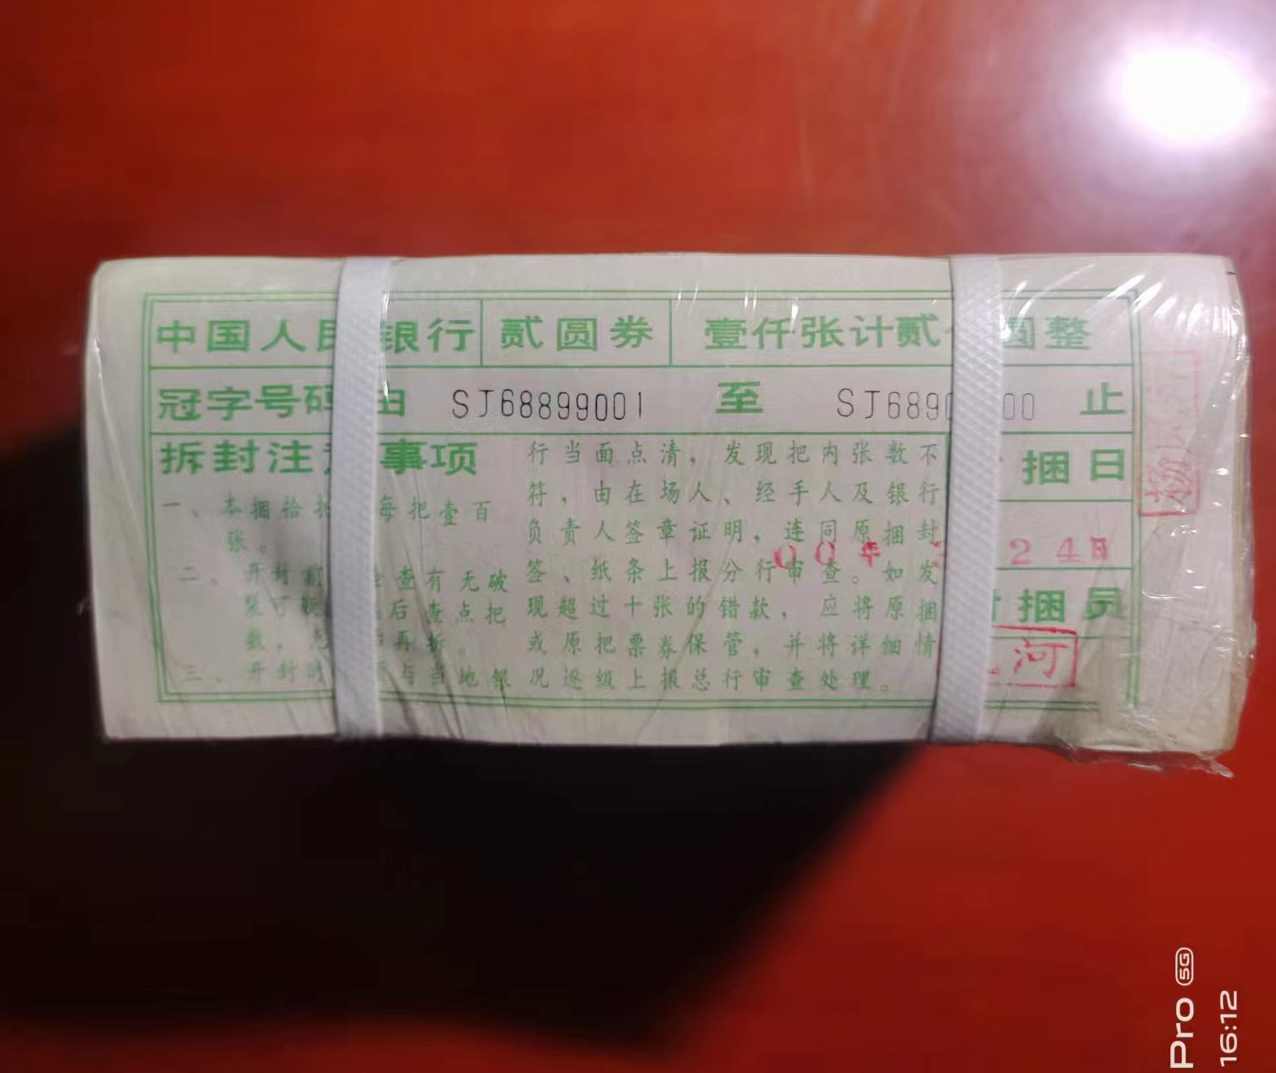 中国人民银行 贰圆券 壹仟张计贰 圆整
冠字号码由 SJ68899001 至 SJ6890 00 止
拆封注 事项
一、本捆拾 每把壹百
张。
二、开封 查有无破
后查点把
数, 再拆。
三、开封时 与当地银
行当面点清,发现把内张数不
符,由在场人、经手人及银行
负责人签章证明,连同原捆封
签、纸条上报分行审查。如发
现超过十张的错款,应将原捆
或原把票券保管,并将详细情
况逐级上报总行审查处理。
捆日
00年 24日
捆员
河
杨
Pro 5G
16:12